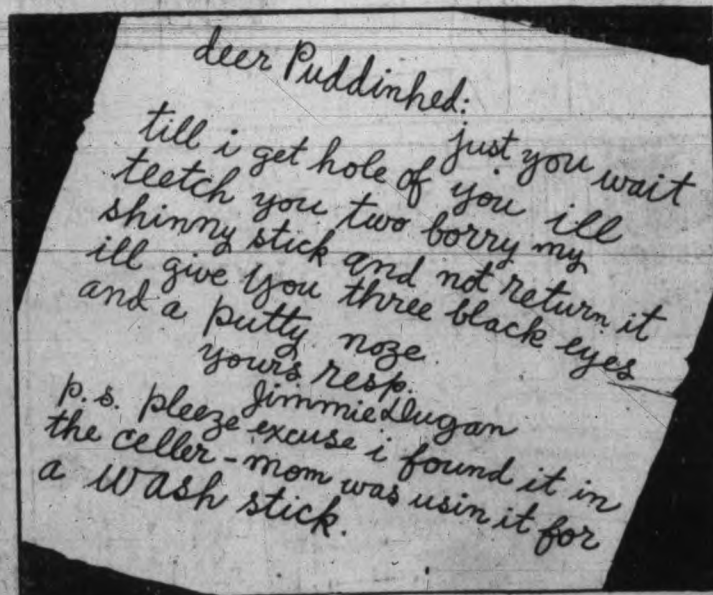 deer Puddinhed:
just you wait
till i get hole of you ill
teetch you two borry my
shinny stick and not return it
ill give you three black eyes
and a putty noze.
yours resp.
Jimmie Dugan
p.s. pleeze excuse i found it in
the celler - mom was usin it for
a wash stick.